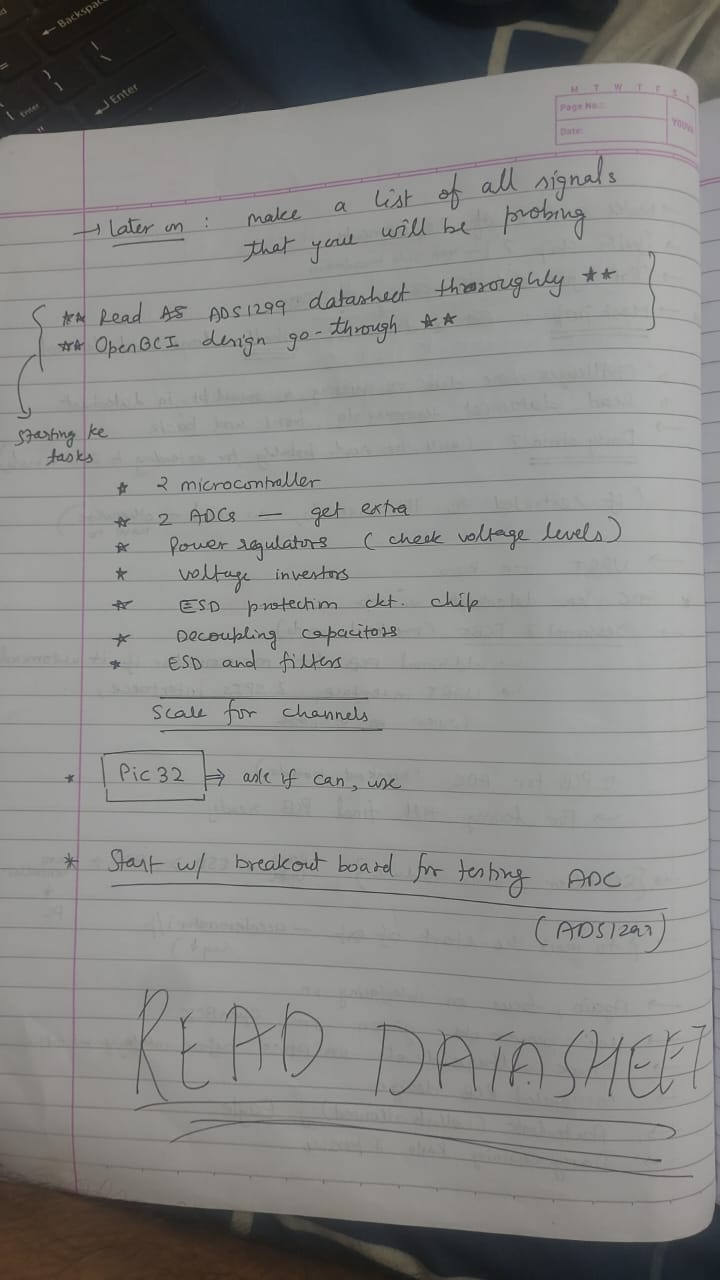 Backspace
Enter
Enter
M T W T F S S
Page No.:
Date:
YOUVA
→ Later on : make a list of all signals
that you will be probing
** Read ADS1299 datasheet thoroughly **
** OpenBCI design go-through **
starting ke
tasks
* 2 microcontroller
* 2 ADCs — get extra
* Power regulators ( check voltage levels )
* voltage investors
* ESD protection ckt. chip
* Decoupling capacitors
* ESD and filters
Scale for channels
* Pic 32 ⇒ ask if can, use
* Start w/ breakout board for testing ADC
(ADS1299)
READ DATASHEET